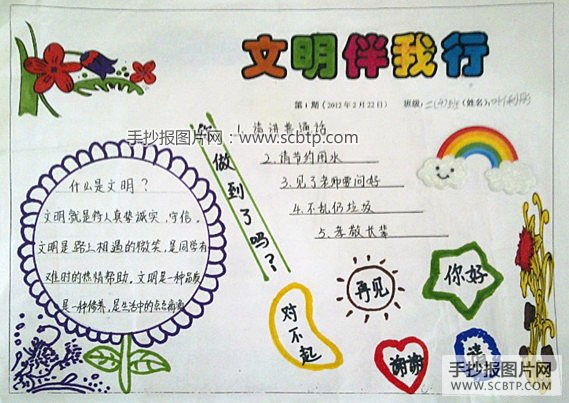 文明伴我行
第1期（2012年2月22日） 班级：二（4）班（姓名：
手抄报图片网：www.scbtp.com
您做到了吗？
1.请讲普通话
2.请节约用水
3.见了老师要问好
4.不乱仍垃圾
5.孝敬长辈
什么是文明？
文明就是待人真挚诚实，守信。
文明是路上相遇的微笑，是同学有
难时的热情帮助。文明是一种品质
是一种修养，是生活中的点点滴滴
对不起
再见
你好
谢谢
请
手抄报图片网
WWW.SCBTP.COM